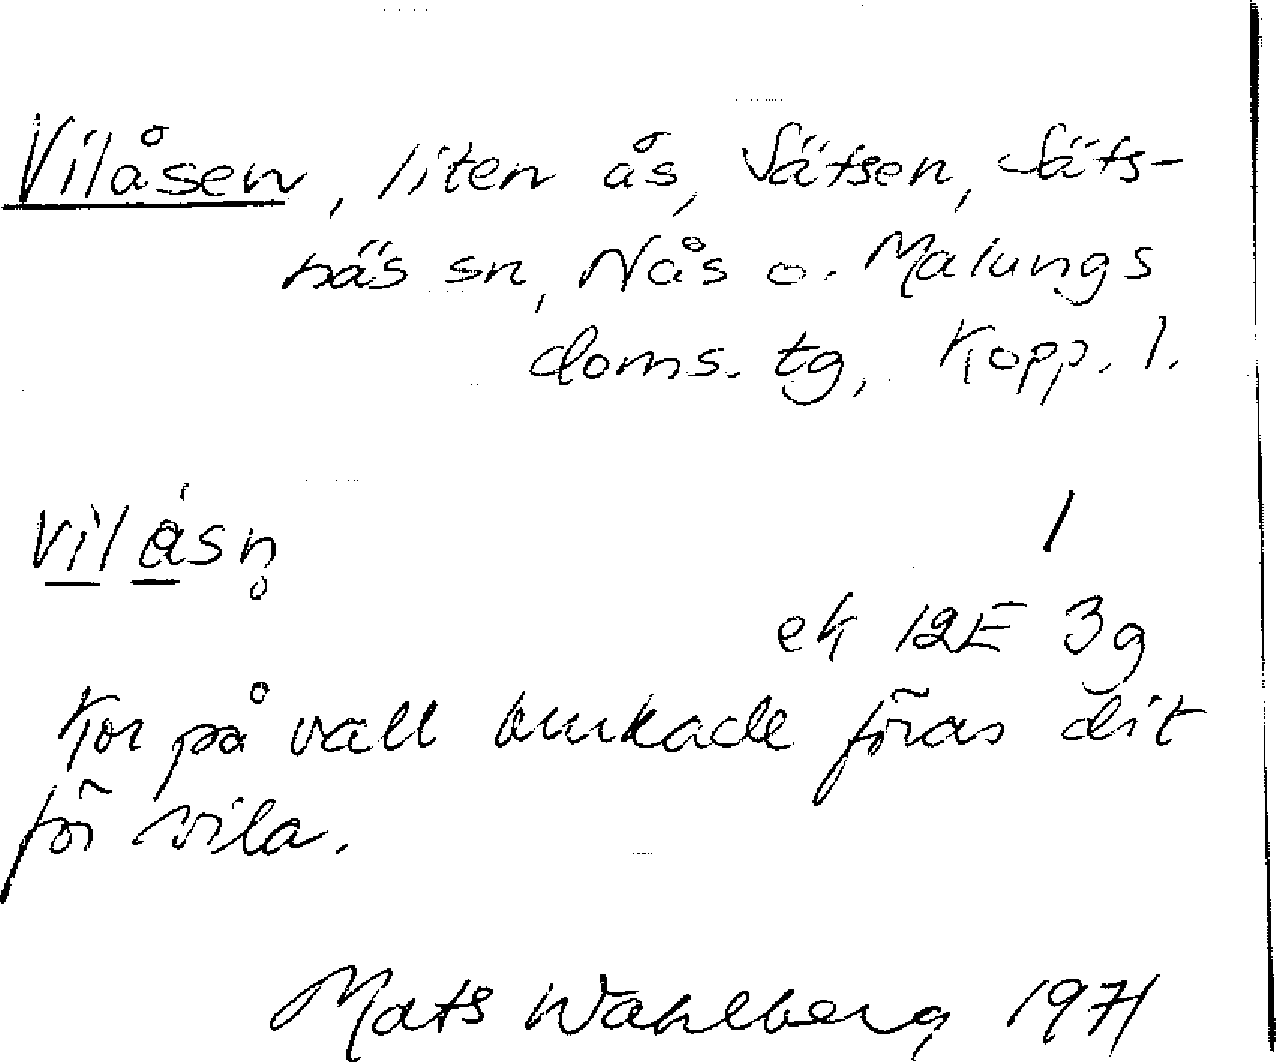 Vilåsen, liten ås, Sätsen, Säts-
näs sn, Nås o. Malungs
doms. tg, Kopp. l.
vìlǻsn̥
1
ek 12E 3g
Kor på vall brukade föras dit
för vila.
Mats Wahlberg 1971